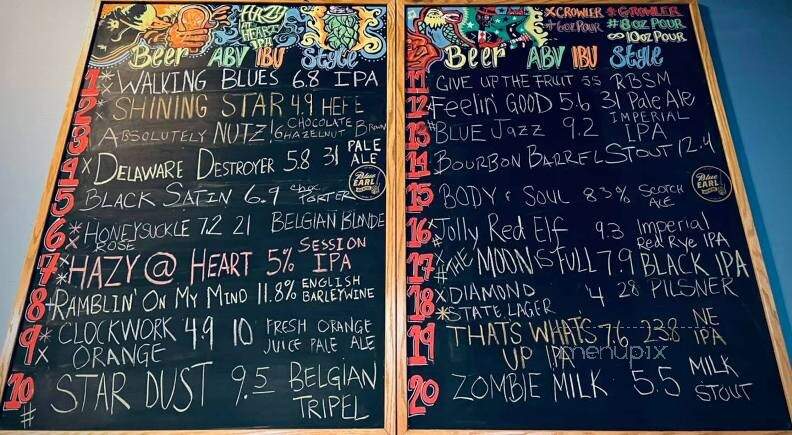 HAZY AT HEART IPA
Beer ABV IBU Style
1 * x WALKING BLUES 6.8 IPA
2 * SHINING STAR 4.9 HEFE
3 x ABSOLUTELY NUTZ! 6 CHOCOLATE HAZELNUT BROWN
4 x DELAWARE DESTROYER 5.8 31 PALE ALE
5 BLACK SATIN 6.9 choc PORTER
6 * x HONEYSUCKLE ROSE 7.2 21 BELGIAN BLONDE
7 * x HAZY @ HEART 5% SESSION IPA
8 # RAMBLIN' ON MY MIND 11.8% ENGLISH BARLEYWINE
9 * x CLOCKWORK ORANGE 4.9 10 FRESH ORANGE JUICE PALE ALE
10 # STAR DUST 9.5 BELGIAN TRIPEL
x CROWLER * GROWLER
+ 6oz POUR # 8oz POUR
∞ 10oz POUR
Beer ABV IBU Style
11 GIVE UP THE FRUIT 5.5 RBSM
12 Feelin' GOOD 5.6 31 Pale Ale
13 # BLUE JAZZ 9.2 IMPERIAL IPA
14 BOURBON BARREL STOUT 12.4
Blue EARL
15 BODY & SOUL 8.3% SCOTCH ALE
16 Jolly Red Elf 9.3 Imperial Red Rye IPA
17 THE MOON IS FULL 7.9 BLACK IPA
18 x * DIAMOND STATE LAGER 4 28 PILSNER
19 THATS WHATS UP IPA 7.6 23.8 NE IPA
menupix
20 ZOMBIE MILK 5.5 MILK STOUT